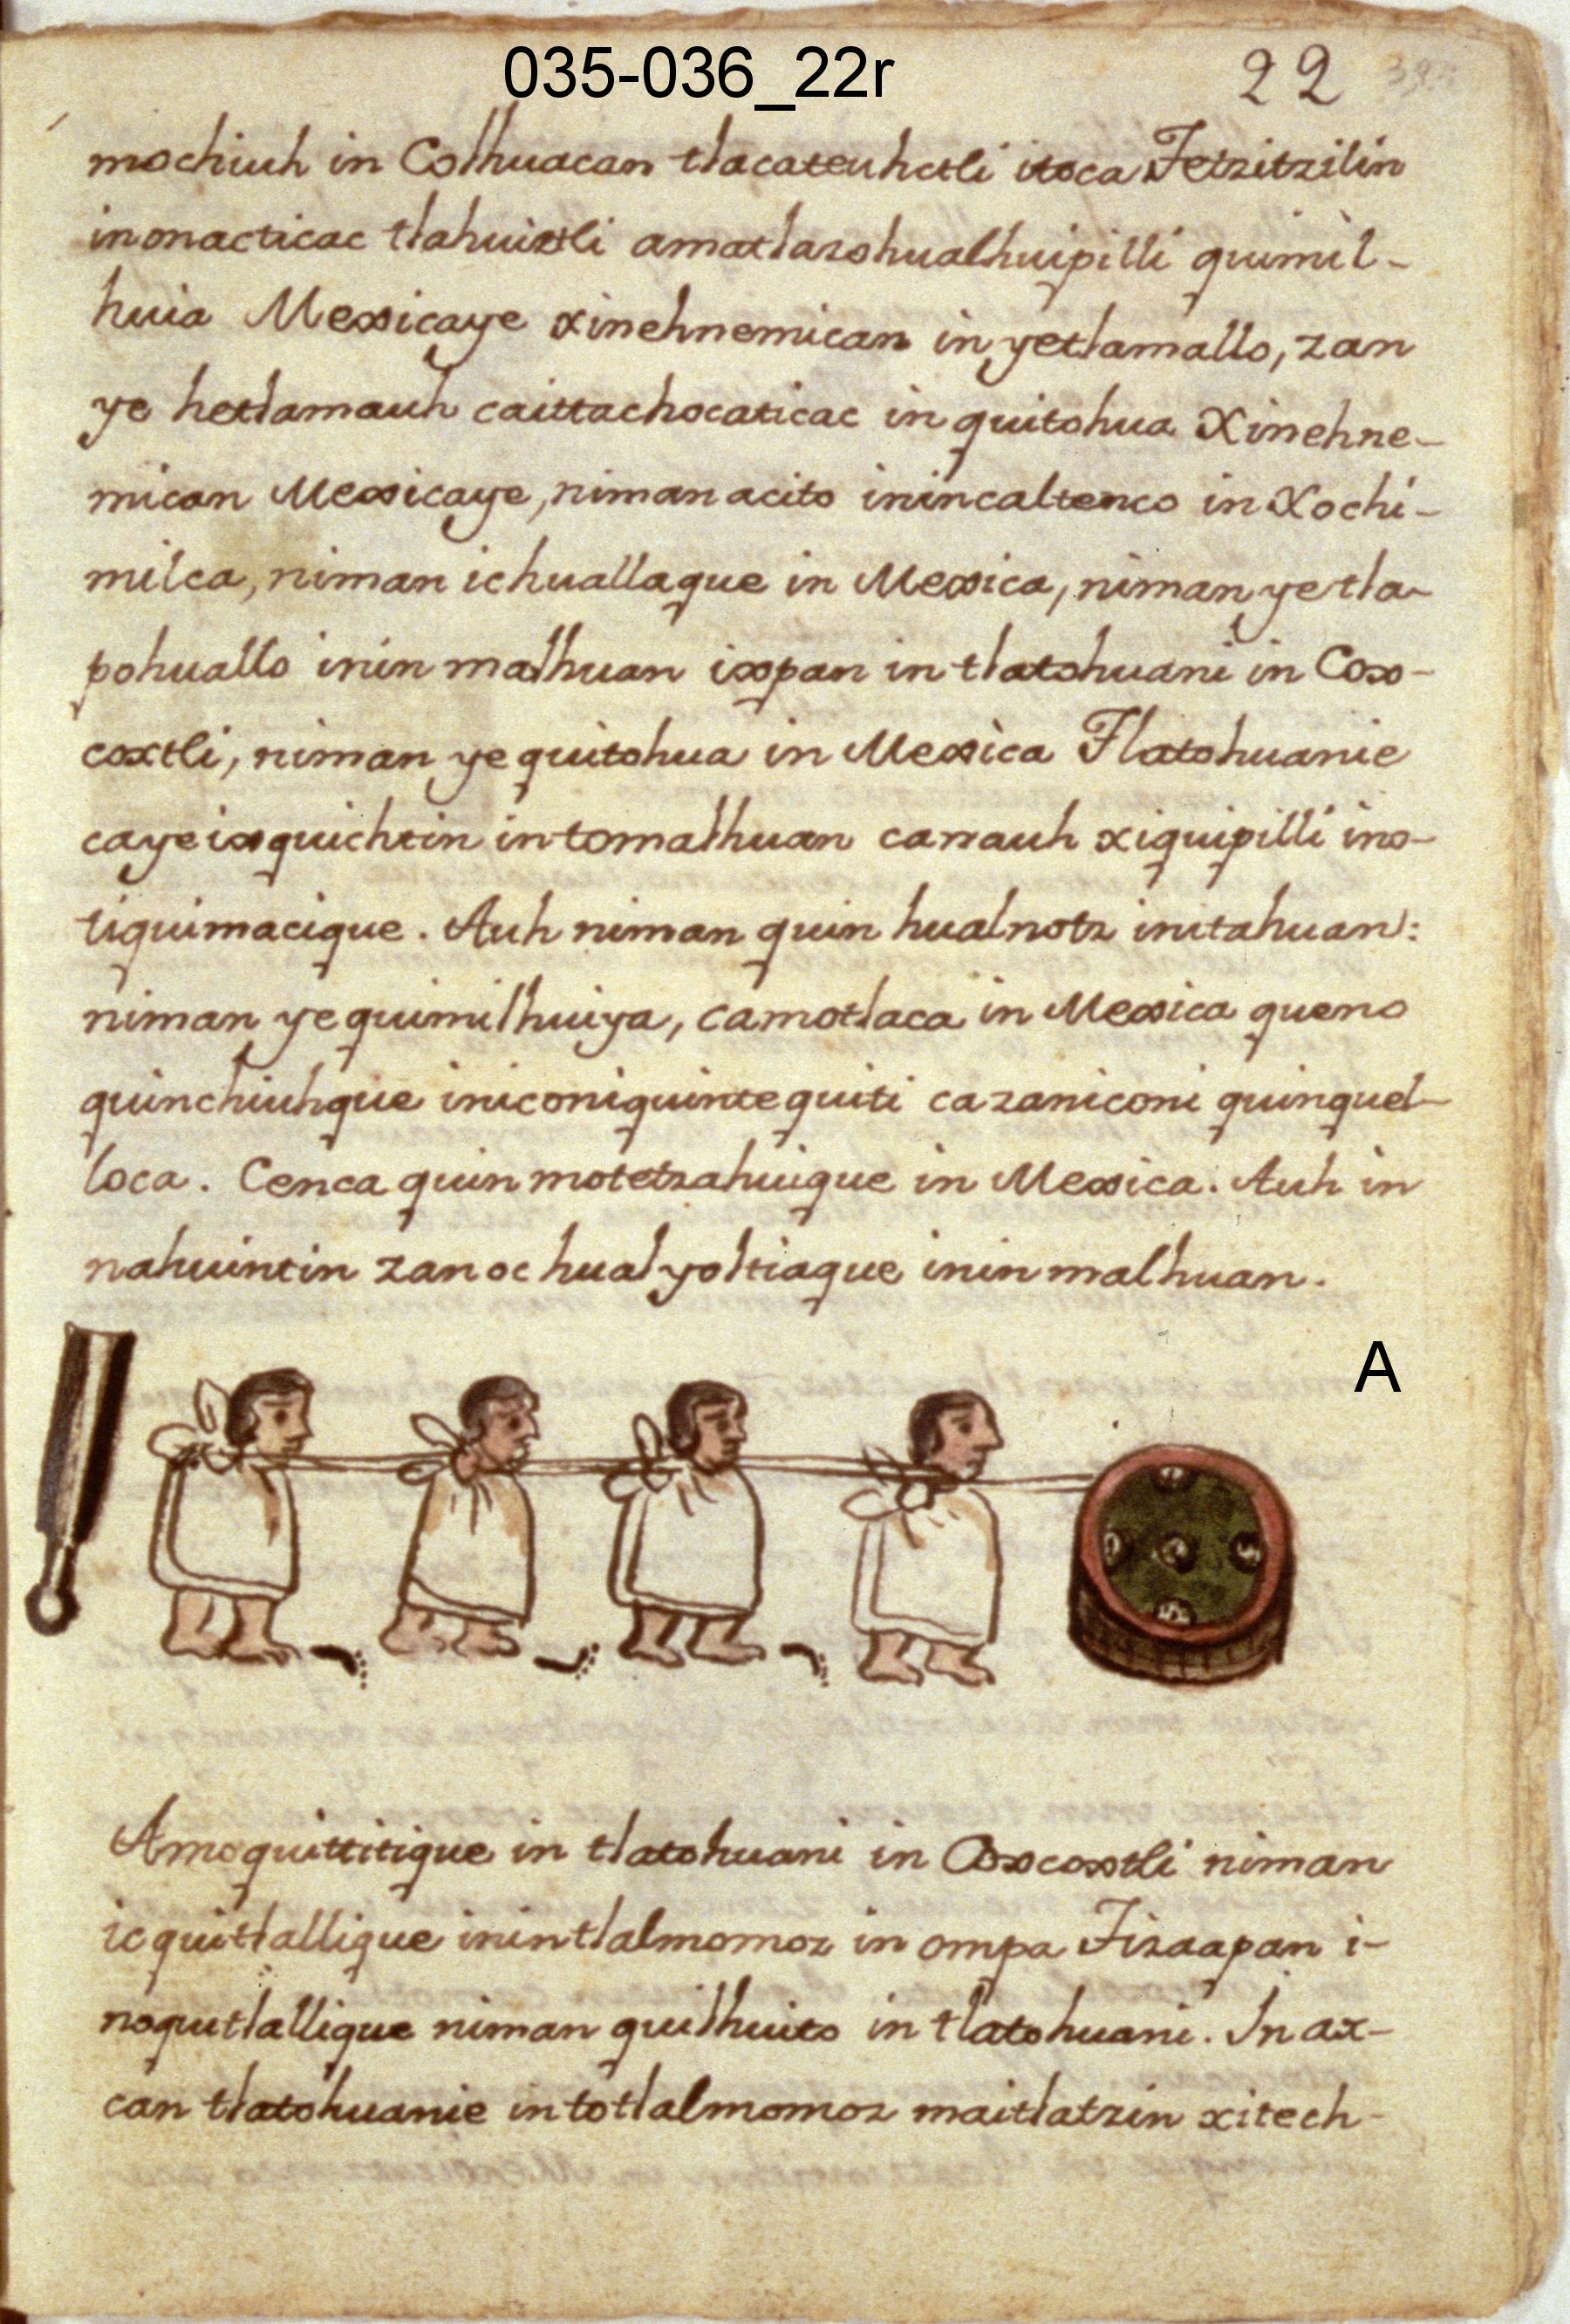 035-036_22r
22
mochiuh in Colhuacan tlacateuhctli itoca Tetzitzilin
inonacticac tlahuiztli amatlazohualhuipilli quimil-
huia Mexicaye xinehnemican in yetlamallo, zan
ye hetlamauh caittachocaticac in quitohua Xinehne-
mican Mexicaye, niman acito inincaltenco in Xochi-
milca, niman ichuallaque in Mexica, niman yetla-
pohuallo inin malhuan ixpan in tlatohuani in Cox-
coxtli, niman ye quitohua in Mexica Tlatohuanie
cayeixquichtin intomalhuan cannauh xiquipilli ino-
tiquimacique. Auh niman quin hualnotz initahuan:
niman ye quimilhuiya, camotlaca in Mexica queno
quinchiuhque iniconiquintequiti cazaniconi quinquel-
loca. Cenca quin motetzahuique in Mexica. Auh in
nahuintin zanoc hualyoltiaque inin malhuan.
A
Amoquittitique in tlatohuani in Coxcoxtli niman
ic quitlallique inintlalmomoz in ompa Tizaapan i-
noquitlallique niman quilhuito in tlatohuani. In ax-
can tlatohuanie intotlalmomoz maitlatzin xitech-